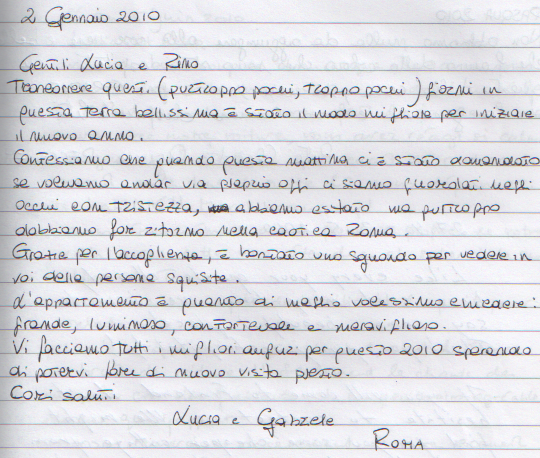 2 Gennaio 2010
Gentili Lucia e Rino
Trascorrere questi (purtroppo pochi, troppo pochi) giorni in
questa terra bellissima è stato il modo migliore per iniziare
il nuovo anno.
Confessiamo che quando questa mattina ci è stato domandato
se volevamo andar via proprio oggi ci siamo guardati negli
occhi con tristezza, abbiamo esitato ma purtroppo
dobbiamo far ritorno nella caotica Roma.
Grazie per l'accoglienza, è bastato uno sguardo per vedere in
voi delle persone squisite.
L'appartamento è quando di meglio volessimo chiedere:
grande, luminoso, confortevole e meraviglioso.
Vi facciamo tutti i migliori auguri per questo 2010 sperando
di potervi fare di nuovo visita presto.
Cari saluti
Lucia e Gabriele
ROMA